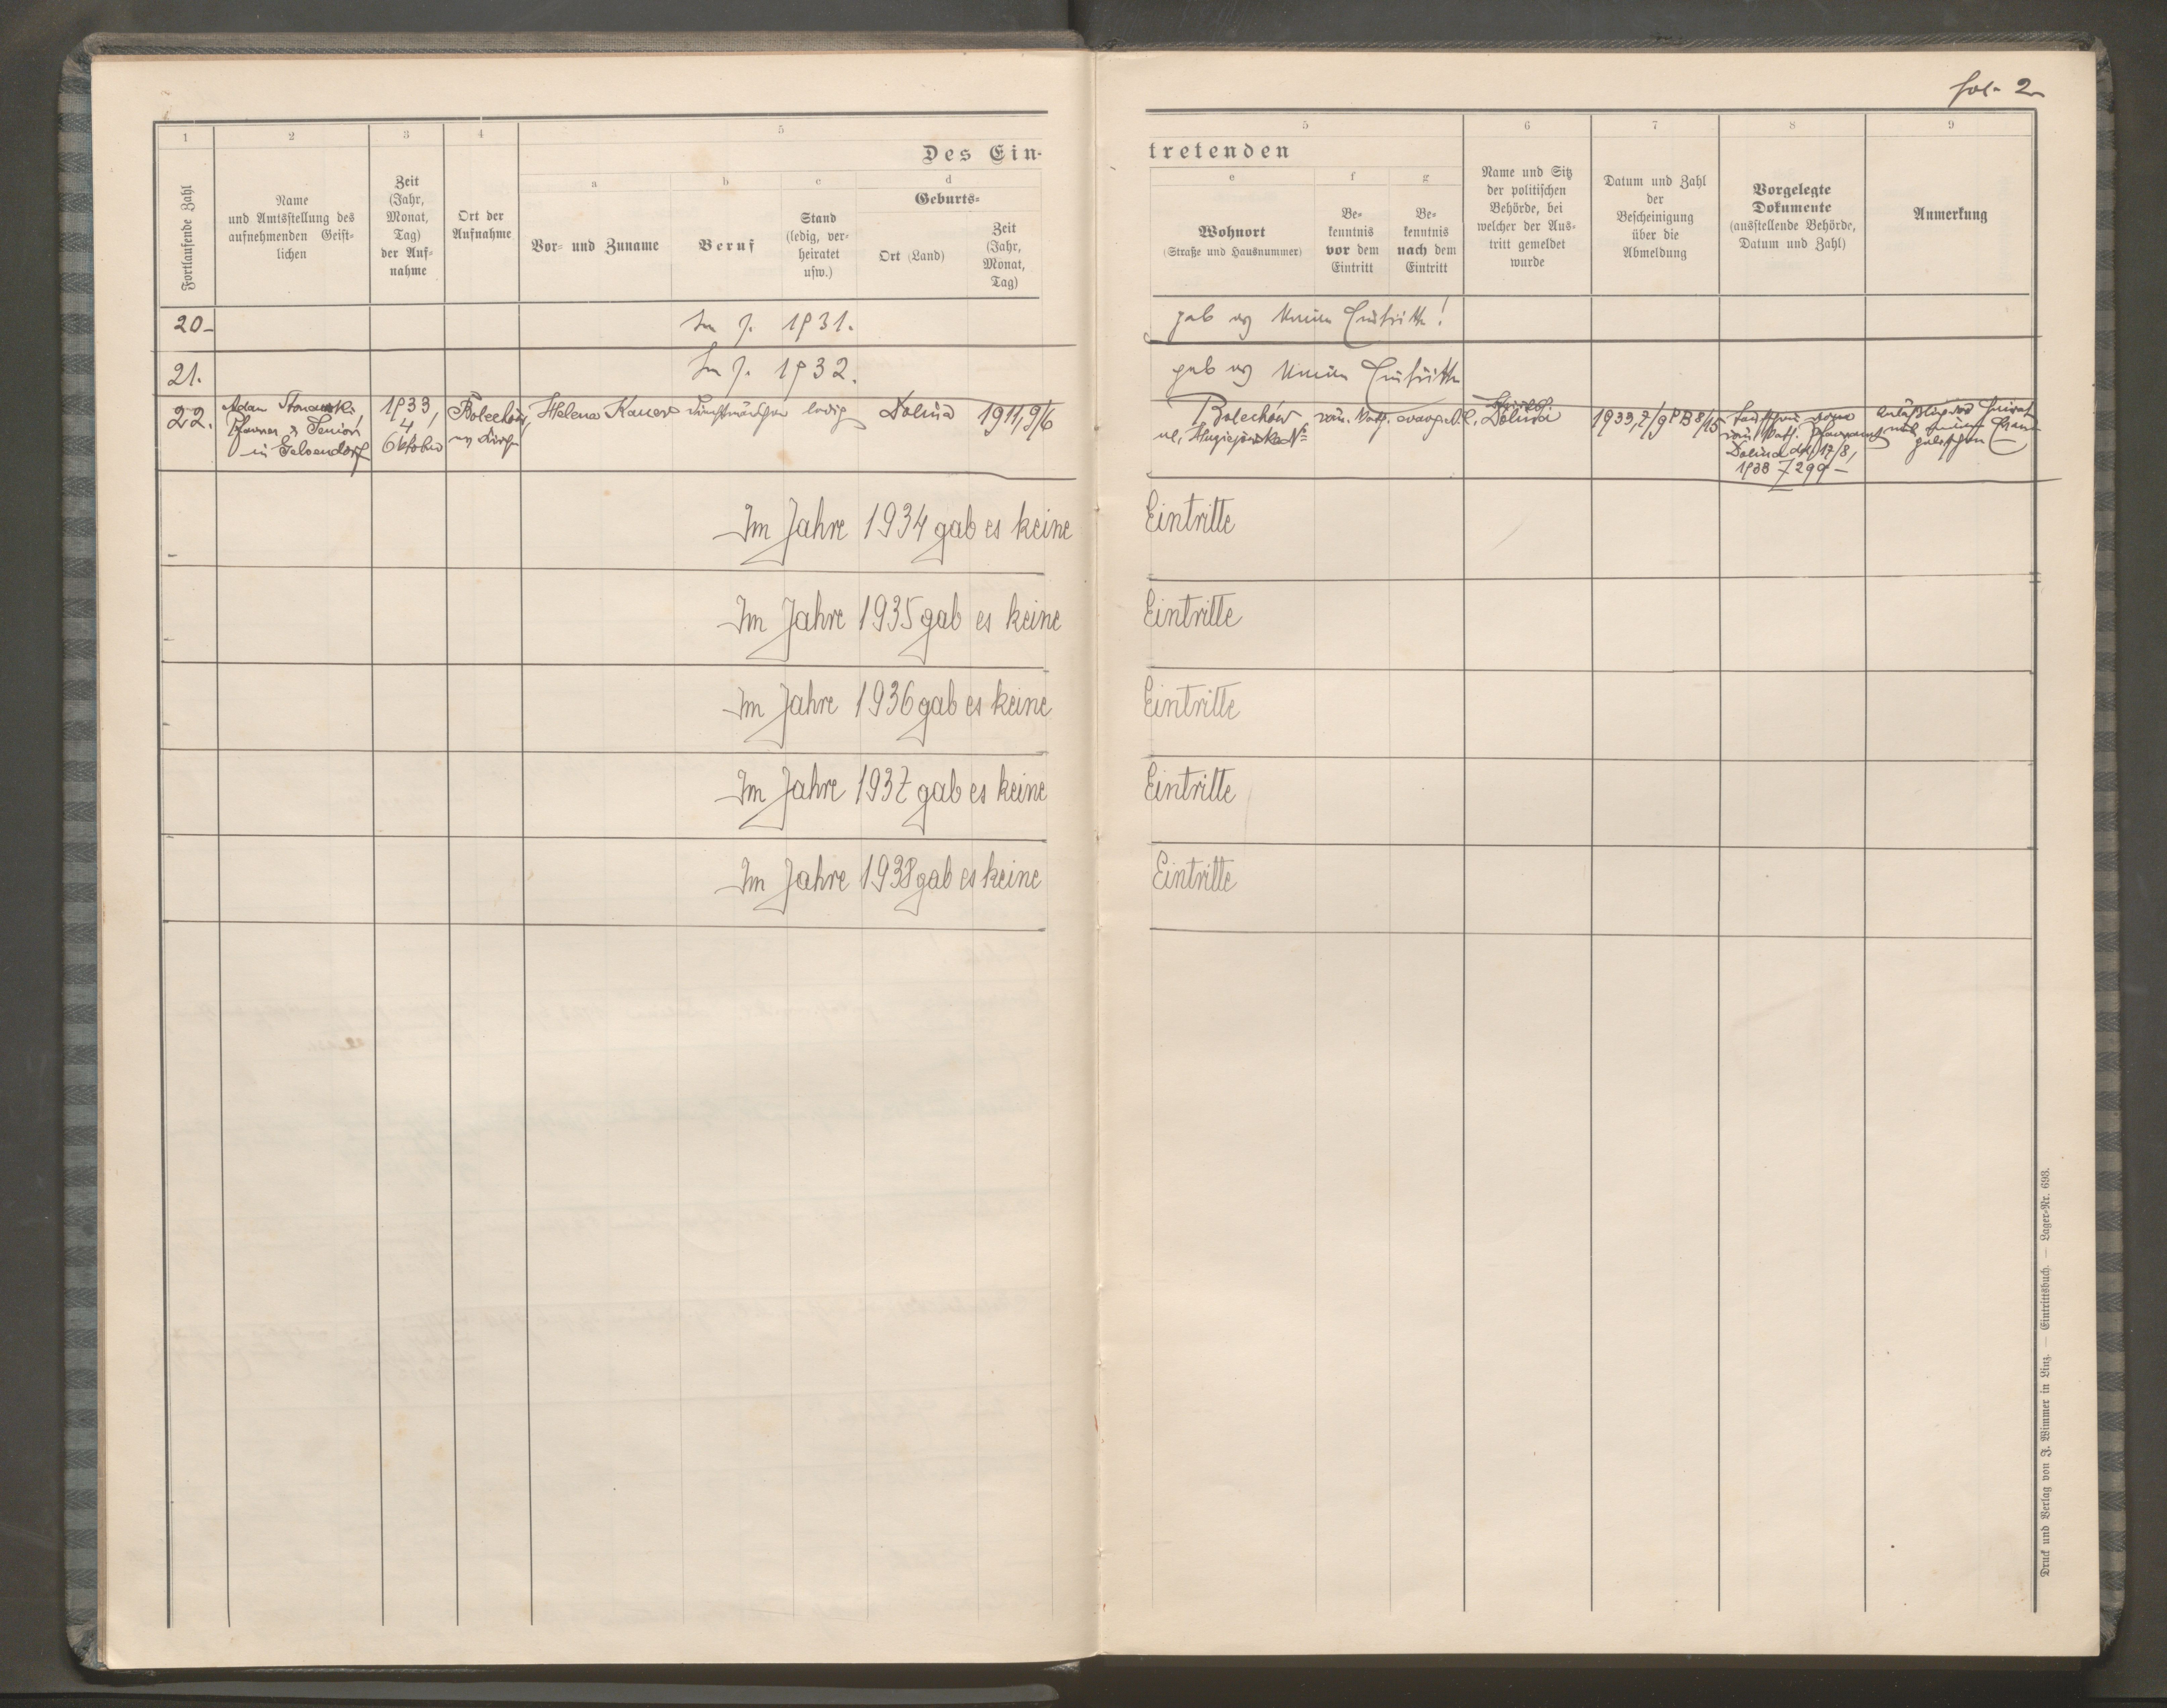 fol. 2
1
2
3
4
5
Des Ein-
Fortlaufende Zahl
Name
und Amtsstellung des
aufnehmenden Geist-
lichen
Zeit
(Jahr,
Monat,
Tag)
der Auf-
nahme
Ort der
Aufnahme
a
Vor- und Zuname
b
Beruf
c
Stand
(ledig, ver-
heiratet
usw.)
d
Geburts-
Ort (Land)
Zeit
(Jahr,
Monat,
Tag)
5
tretenden
e
Wohnort
(Straße und Hausnummer)
f
Be-
kenntnis
vor dem
Eintritt
g
Be-
kenntnis
nach dem
Eintritt
6
Name und Sitz
der politischen
Behörde, bei
welcher der Aus-
tritt gemeldet
wurde
7
Datum und Zahl
der
Bescheinigung
über die
Abmeldung
8
Vorgelegte
Dokumente
(ausstellende Behörde,
Datum und Zahl)
9
Anmerkung
20.
Im J. 1931.
gab es keine Eintritte!
21.
Im J. 1932.
gab es keine Eintritte
22.
Adam
Pfarrer & Senior
in Gelsendorf
1933,
4
Oktober
Bolechów,
ev. Kirche
Helena
ledig
Dolina
1911, 9/6
Bolechów
ul.
röm. kath.
evang. A. C.
Dolina
1933, 7/9
Taufschein vom
röm. kath. Pfarramt
Dolina dd 17/8,
1933
Im Jahre 1934 gab es keine Eintritte
Im Jahre 1935 gab es keine Eintritte
Im Jahre 1936 gab es keine Eintritte
Im Jahre 1937 gab es keine Eintritte
Im Jahre 1938 gab es keine Eintritte
Druck und Verlag von J. Wimmer in Linz. — Eintrittsbuch. — Lager-Nr. 693.